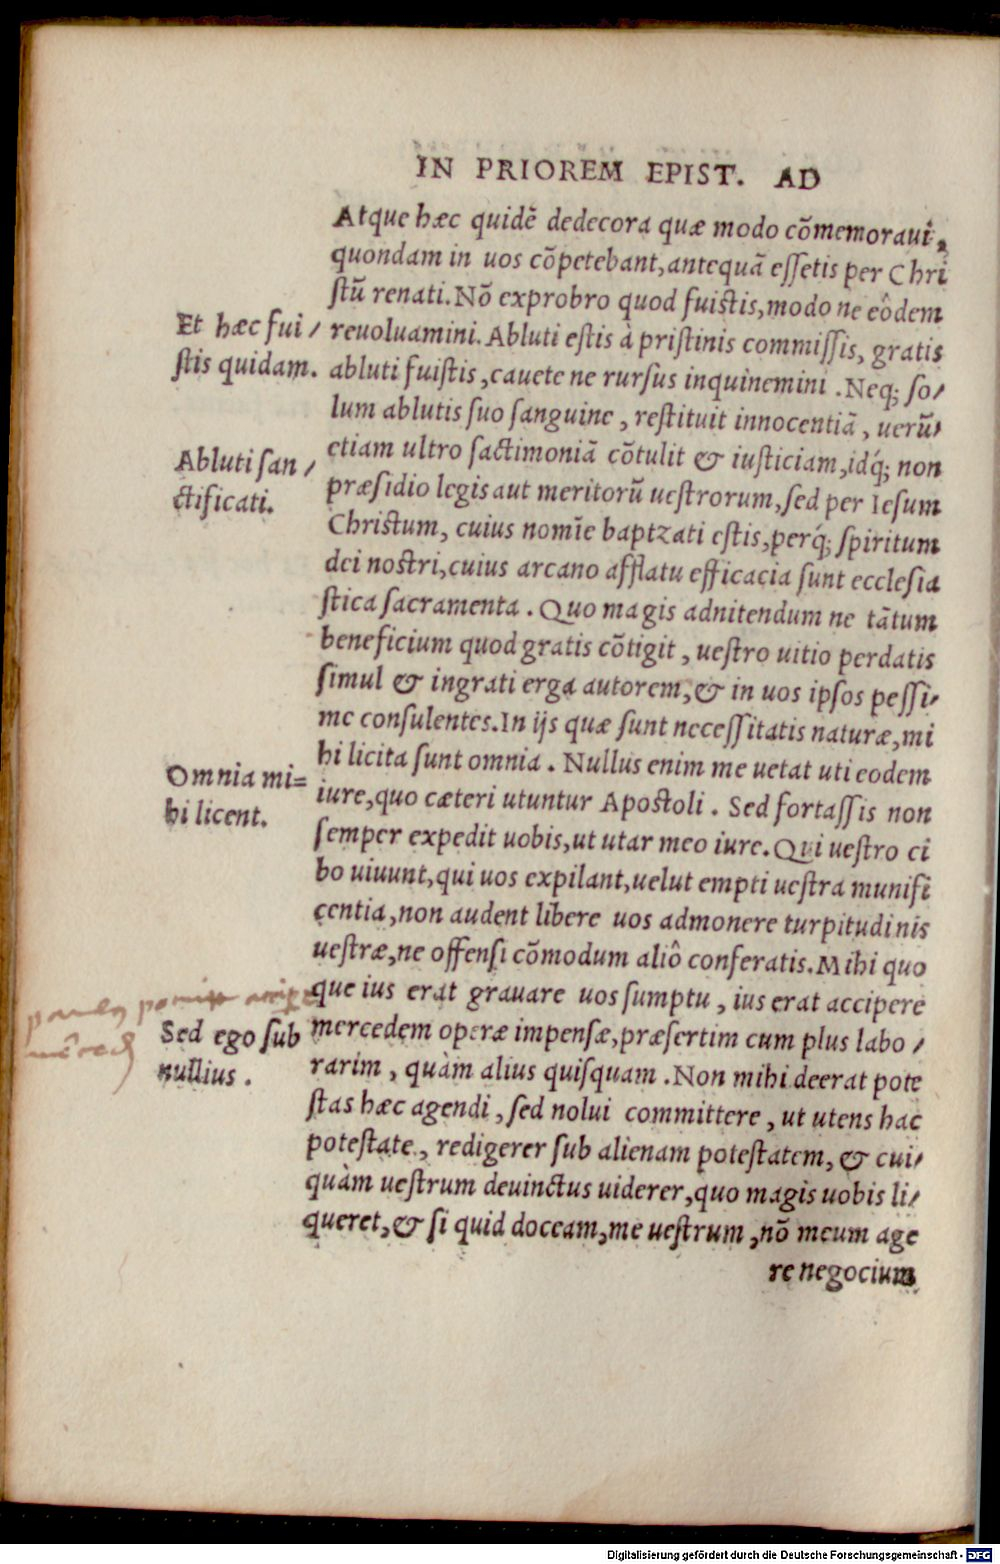 IN PRIOREM EPIST. AD
Atque hæc quidē dedecora quæ modo cōmemoraui,
quondam in uos cōpetebant, antequā eſſetis per Chri
ſtū renati. Nō exprobro quod fuiſtis, modo ne eôdem
Et hæc fui/
reuoluamini. Abluti eſtis à priſtinis commiſſis, gratis
ſtis quidam.
abluti fuiſtis, cauete ne rurſus inquinemini. Neq; ſo/
lum ablutis ſuo ſanguine, reſtituit innocentiā, uerū/
Abluti ſan/
etiam ultro ſactimoniā cōtulit & iuſticiam, idq́; non
ctificati.
præſidio legis aut meritorū ueſtrorum, ſed per Ieſum
Chriſtum, cuius nomīe baptzati eſtis, perq́; ſpiritum
dei noſtri, cuius arcano afflatu efficacia ſunt eccleſia
ſtica ſacramenta. Quo magis adnitendum ne tātum
beneficium quod gratis cōtigit, ueſtro uitio perdatis
ſimul & ingrati erga autorem, & in uos ipſos peſſi/
me conſulentes. In ijs quæ ſunt neceſſitatis naturæ, mi
Omnia mi=
hi licita ſunt omnia. Nullus enim me uetat uti eodem
hi licent.
iure, quo cæteri utuntur Apoſtoli. Sed fortaſſis non
ſemper expedit uobis, ut utar meo iure. Qui ueſtro ci
bo uiuunt, qui uos expilant, uelut empti ueſtra munifi
centia, non audent libere uos admonere turpitudinis
ueſtræ, ne offenſi cōmodum aliô conferatis. Mihi quo
que ius erat grauare uos ſumptu, ius erat accipere
Sed ego ſub
mercedem operæ impenſæ, præſertim cum plus labo/
nullius.
rarim, quàm alius quiſquam. Non mihi deerat pote
ſtas hæc agendi, ſed nolui committere, ut utens hac
poteſtate, redigerer ſub alienam poteſtatem, & cui/
quàm ueſtrum deuinctus uiderer, quo magis uobis li/
queret, & ſi quid doceam, me ueſtrum, nō meum age
re negocium
Digitalisierung gefördert durch die Deutsche Forschungsgemeinschaft - DFG